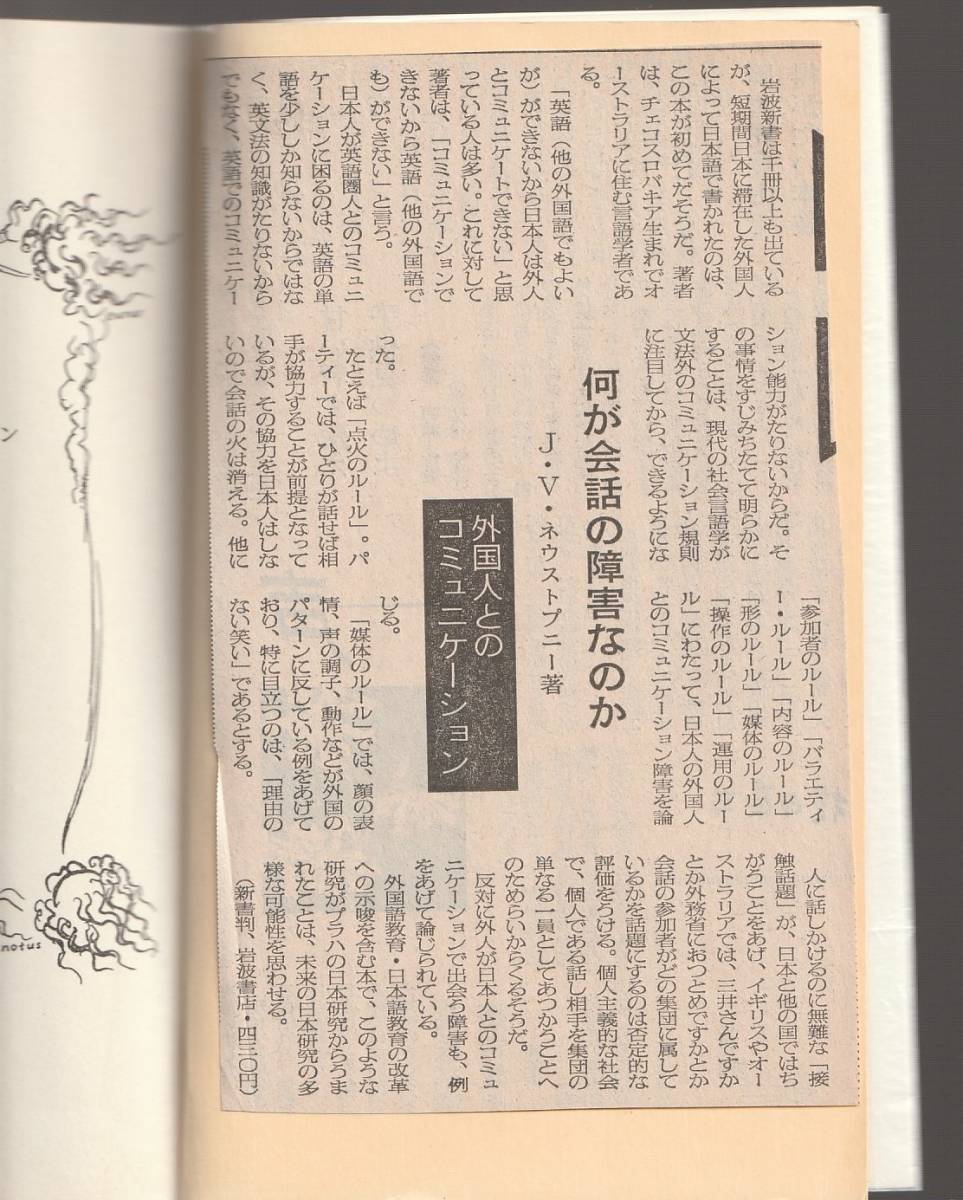 何が会話の障害なのか
J・V・ネウストプニー著
外国人との
コミュニケーション
岩波新書は千冊以上も出ている
が、短期間日本に滞在した外国人
によって日本語で書かれたのは、
この本が初めてだそうだ。著者
は、チェコスロバキア生まれでオ
ーストラリアに住む言語学者であ
る。
「英語（他の外国語でもよい
が）ができないから日本人は外人
とコミュニケートできない」と思
っている人は多い。これに対して
著者は、「コミュニケーションで
きないから英語（他の外国語で
も）ができない」と言う。
日本人が英語圏人とのコミュニ
ケーションに困るのは、英語の単
語を少ししか知らないからではな
く、英文法の知識がたりないから
でもなく、英語でのコミュニケー
ション能力がたりないからだ。そ
の事情をすじみちたてて明らかに
することは、現代の社会言語学が
文法外のコミュニケーション規則
に注目してから、できるようにな
った。
たとえば「点火のルール」。パ
ーティーでは、ひとりが話せば相
手が協力することが前提となって
いるが、その協力を日本人はしな
いので会話の火は消える。他に
「参加者のルール」「バラエティ
ー・ルール」「内容のルール」
「形のルール」「媒体のルール」
「操作のルール」「運用のルー
ル」にわたって、日本人の外国人
とのコミュニケーション障害を論
じる。
「媒体のルール」では、顔の表
情、声の調子、動作などが外国の
パターンに反している例をあげて
おり、特に目立つのは、「理由の
ない笑い」であるとする。
人に話しかけるのに無難な「接
触話題」が、日本と他の国ではち
がうことをあげ、イギリスやオー
ストラリアでは、三井さんですか
とか外務省におつとめですかとか
会話の参加者がどの集団に属して
いるかを話題にするのは否定的な
評価をうける。個人主義的な社会
で、個人である話し相手を集団の
単なる一員としてあつかうことへ
のためらいからくるそうだ。
反対に外人が日本人とのコミュ
ニケーションで出会う障害も、例
をあげて論じられている。
外国語教育・日本語教育の改革
への示唆を含む本で、このような
研究がプラハの日本研究からうま
れたことは、未来の日本研究の多
様な可能性を思わせる。
（新書判、岩波書店・四三〇円）
ン
notus